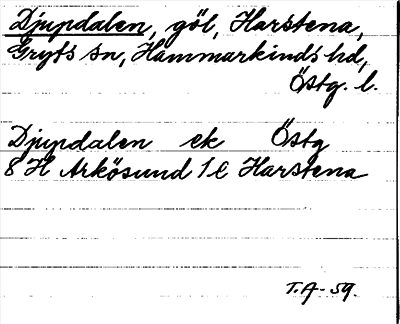 Djupdalen, göl, Harstena,
Gryts sn, Hammarkinds hd,
Östg. l.
Djupdalen ek Östg
8 H Arkösund 1 C Harstena
T.A-59.